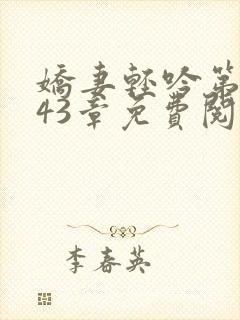 嬌妻輕吟第
43章免費閱
李春英